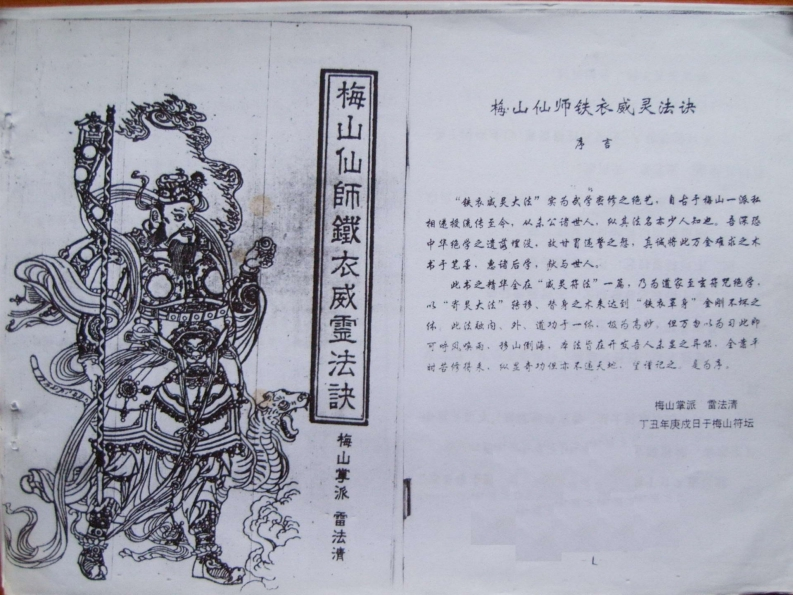 梅山仙師鐵衣威靈法訣
梅山掌派 雷法清
梅山仙师铁衣威灵法诀
序言
“铁衣威灵大法”实为武学密修之绝艺，自古于梅山一派私
相递授流传至今，从未公诸世人，似其法名亦少人知也。吾深恐
中华绝学之遗落埋没，故甘冒违誓之咎，真诚将此万金难求之术
书于笔墨，惠诸后学，献与世人。
此书之精华全在“威灵符法”一篇，乃为道家至玄符咒绝学，
以“寄灵大法”张移、替身之术来达到“铁衣罩身”金刚不坏之
体。此法融内、外、道功于一体，极为高妙。但万勿以为习此即
可呼风唤雨，移山倒海，本法旨在开发吾人未显之异能，全靠平
时苦修得来，纵显奇功但亦不逆天地，望谨记之。是为序。
梅山掌派 雷法清
丁丑年庚戌日于梅山符坛